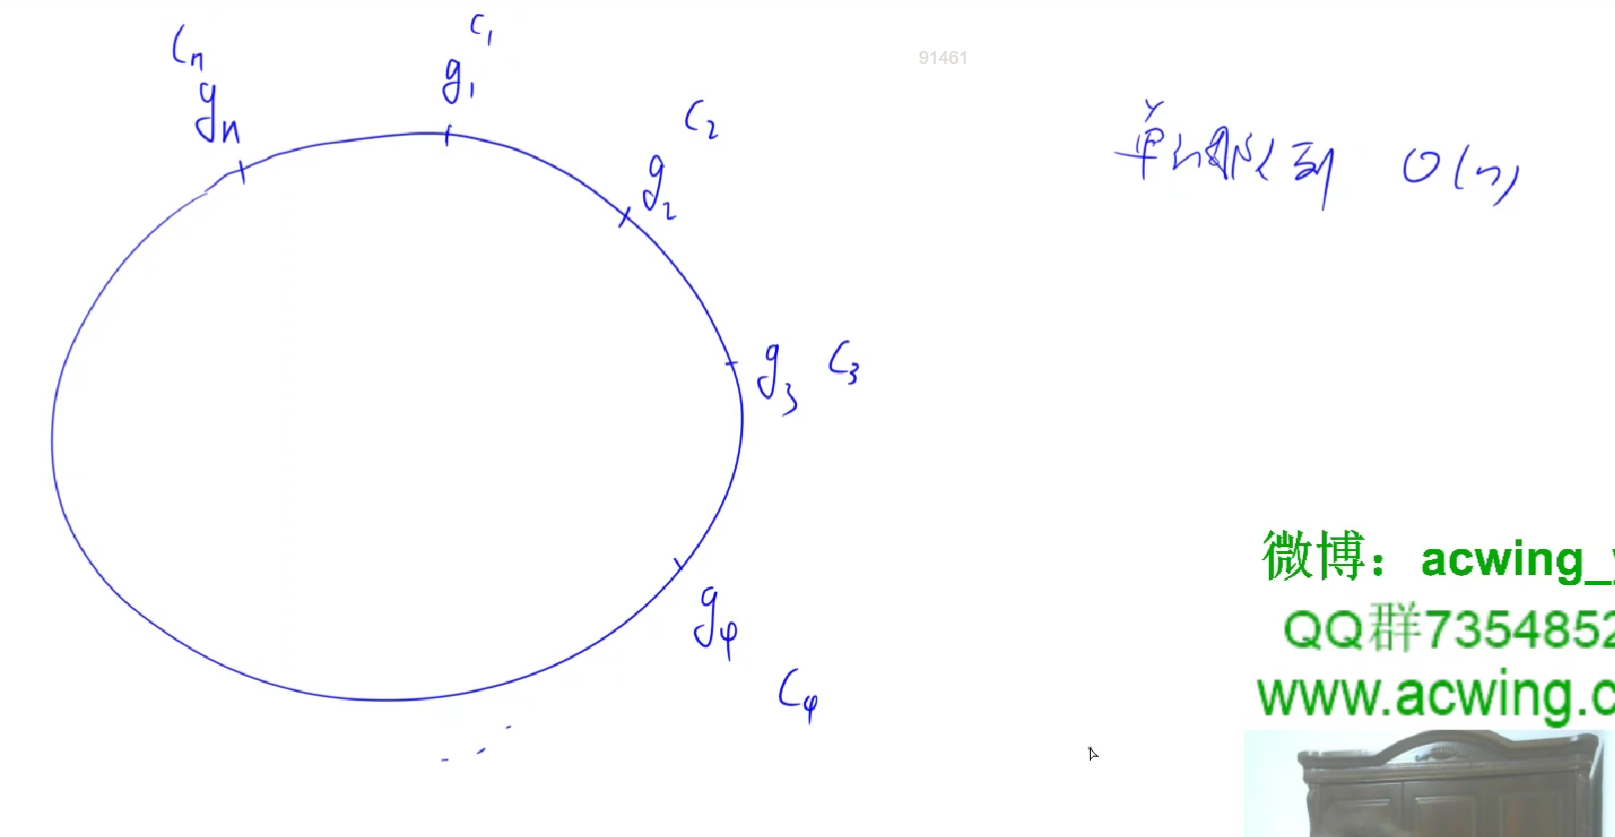 cₙ
gₙ
c₁
g₁
c₂
g₂
g₃ c₃
g₄
c₄
91461
单调队列 O(n)
微博：acwing_
QQ群7354852
www.acwing.c